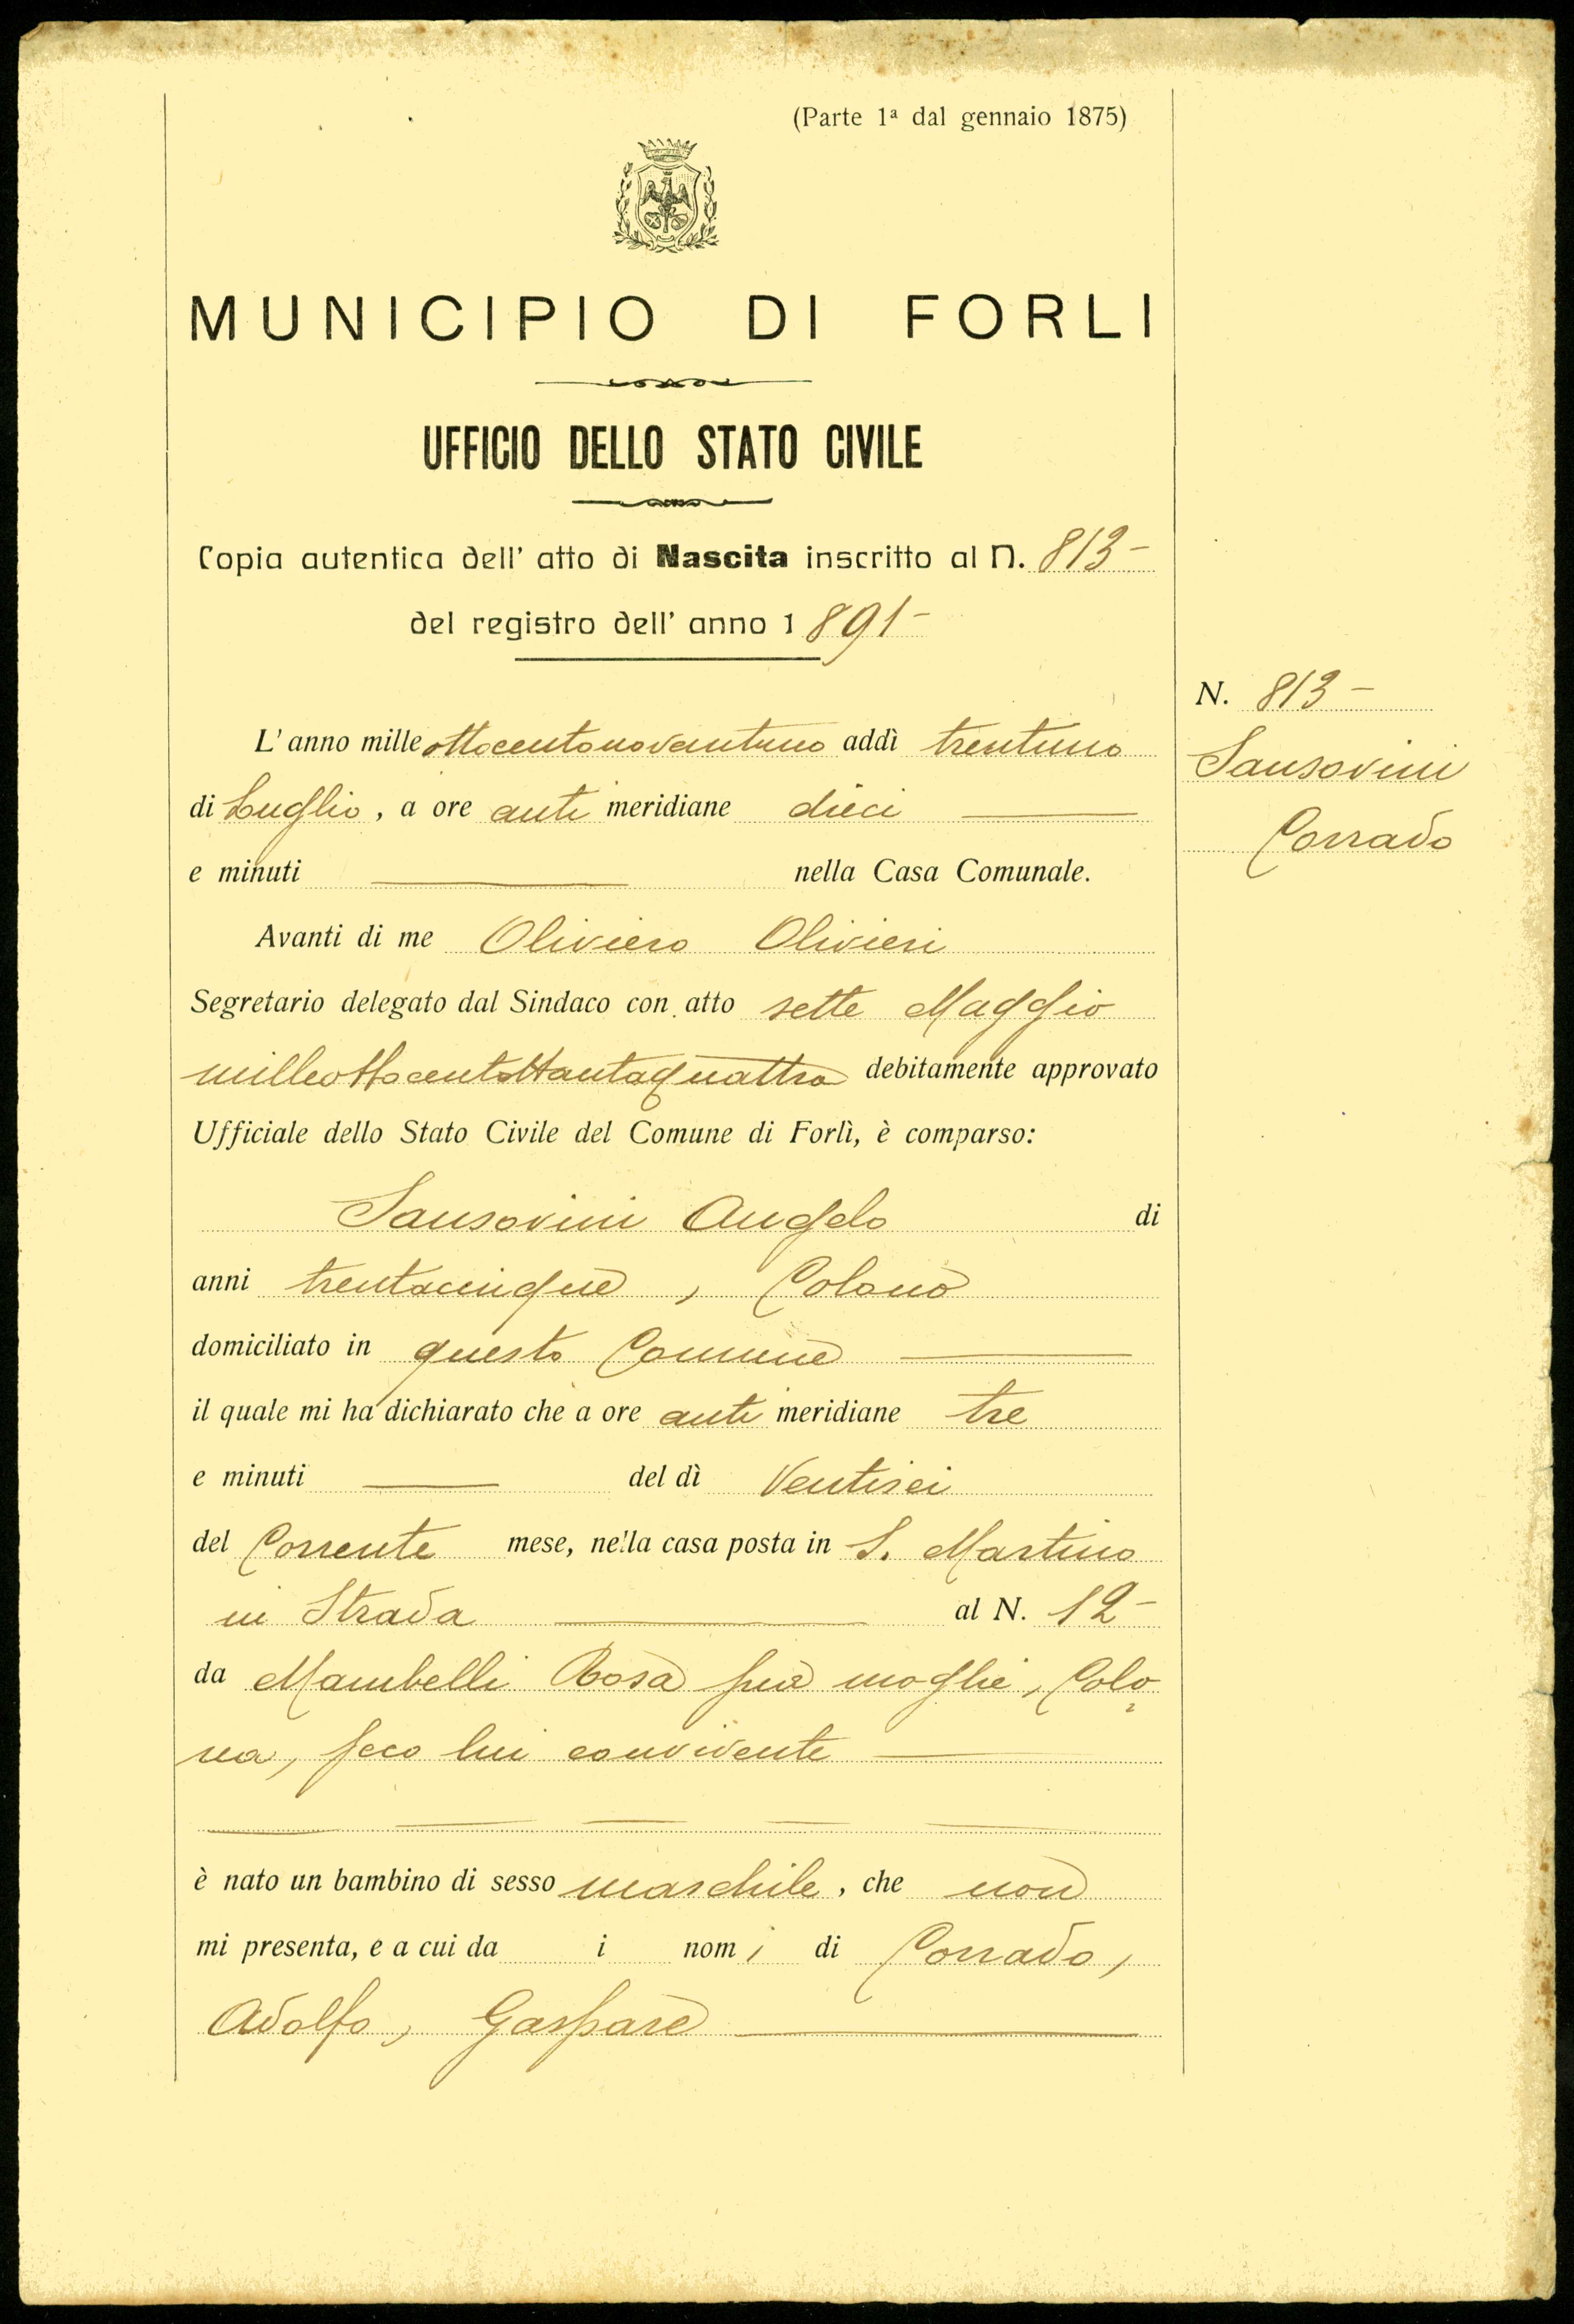 (Parte 1ª dal gennaio 1875)
MUNICIPIO DI FORLI
UFFICIO DELLO STATO CIVILE
Copia autentica dell' atto di Nascita inscritto al N. 813-
del registro dell' anno 1891-
N. 813-
Sansovini
Corrado
L'anno milleottocentonovantuno addì trentuno
di Luglio, a ore anti meridiane dieci
e minuti nella Casa Comunale.
Avanti di me Oliviero Olivieri
Segretario delegato dal Sindaco con atto sette Maggio
milleottocentottantaquattro debitamente approvato
Ufficiale dello Stato Civile del Comune di Forlì, è comparso:
Sansovini Angelo di
anni trentacinque, Colono
domiciliato in questo Comune
il quale mi ha dichiarato che a ore anti meridiane tre
e minuti del dì Ventisei
del Corrente mese, nella casa posta in S. Martino
in Strada al N. 12-
da Mambelli Rosa sua moglie, Colo
na, seco lui convivente
è nato un bambino di sesso maschile, che non
mi presenta, e a cui da i nomi di Corrado,
Adolfo, Gaspare